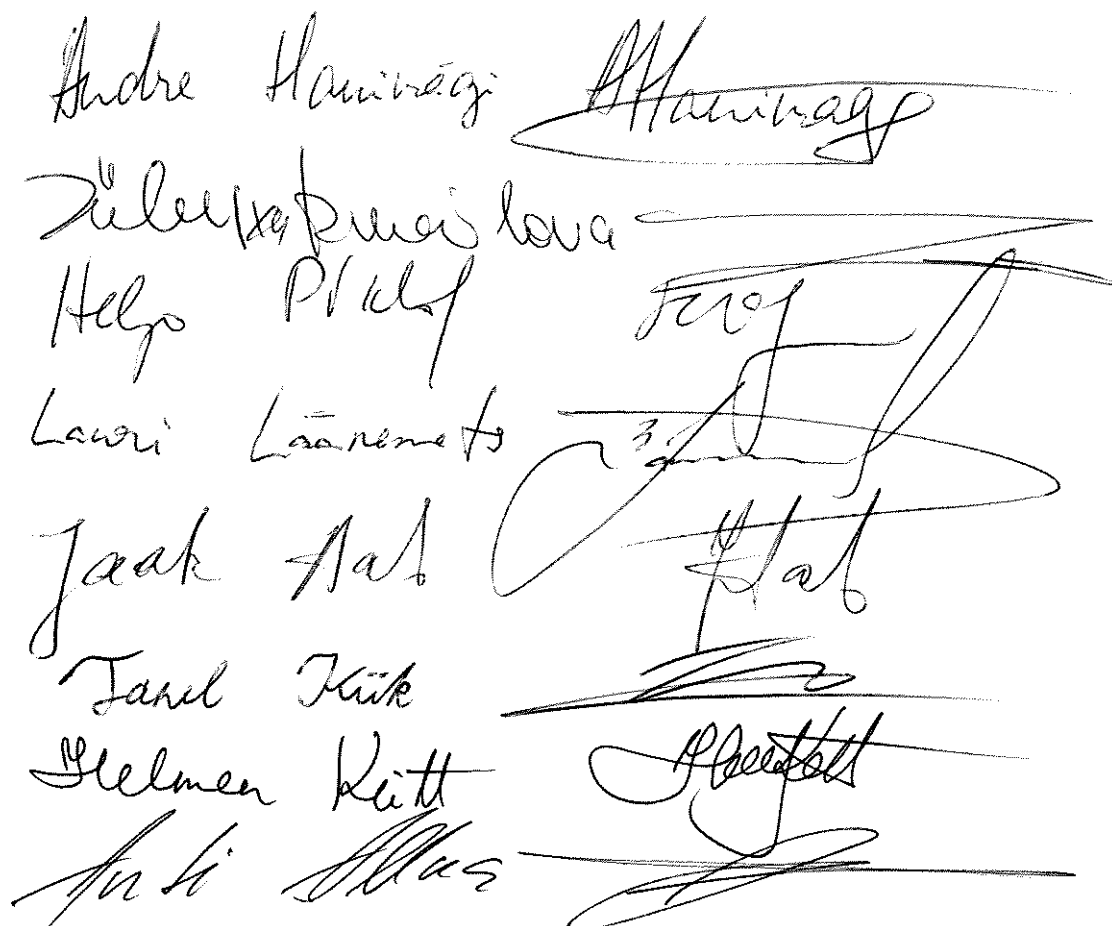 Andre Hanimägi AHanimägi
Züleyxa Izmailova
Heljo Pikhof
Lauri Läänemets
Jaak Aab JAab
Tanel Kiik
Helmen Kütt
Anti Allas